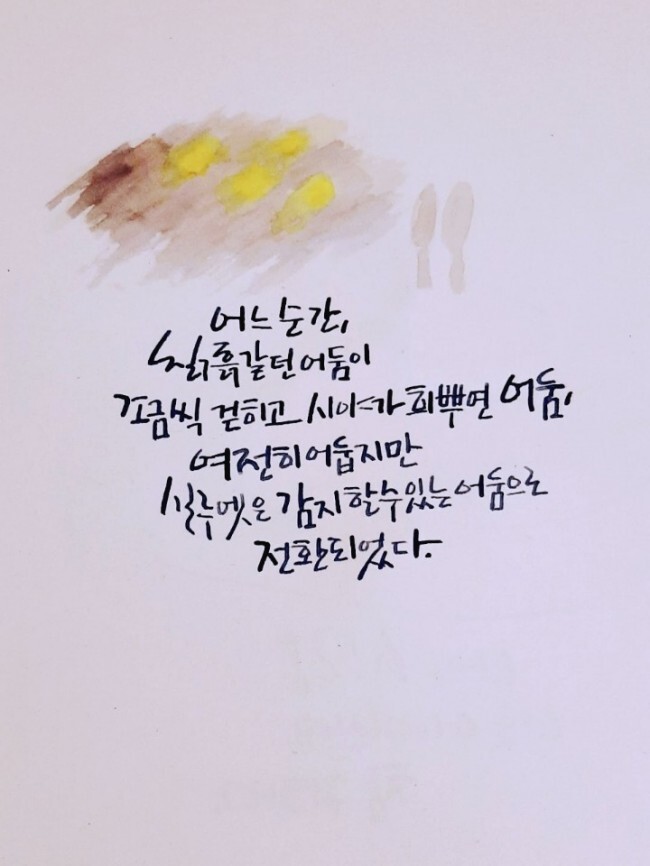 어느 순간,
칠흙같던 어둠이
조금씩 걷히고 시야가 희뿌연 어둠,
여전히 어둡지만
실루엣은 감지할 수 있는 어둠으로
전환되었다.